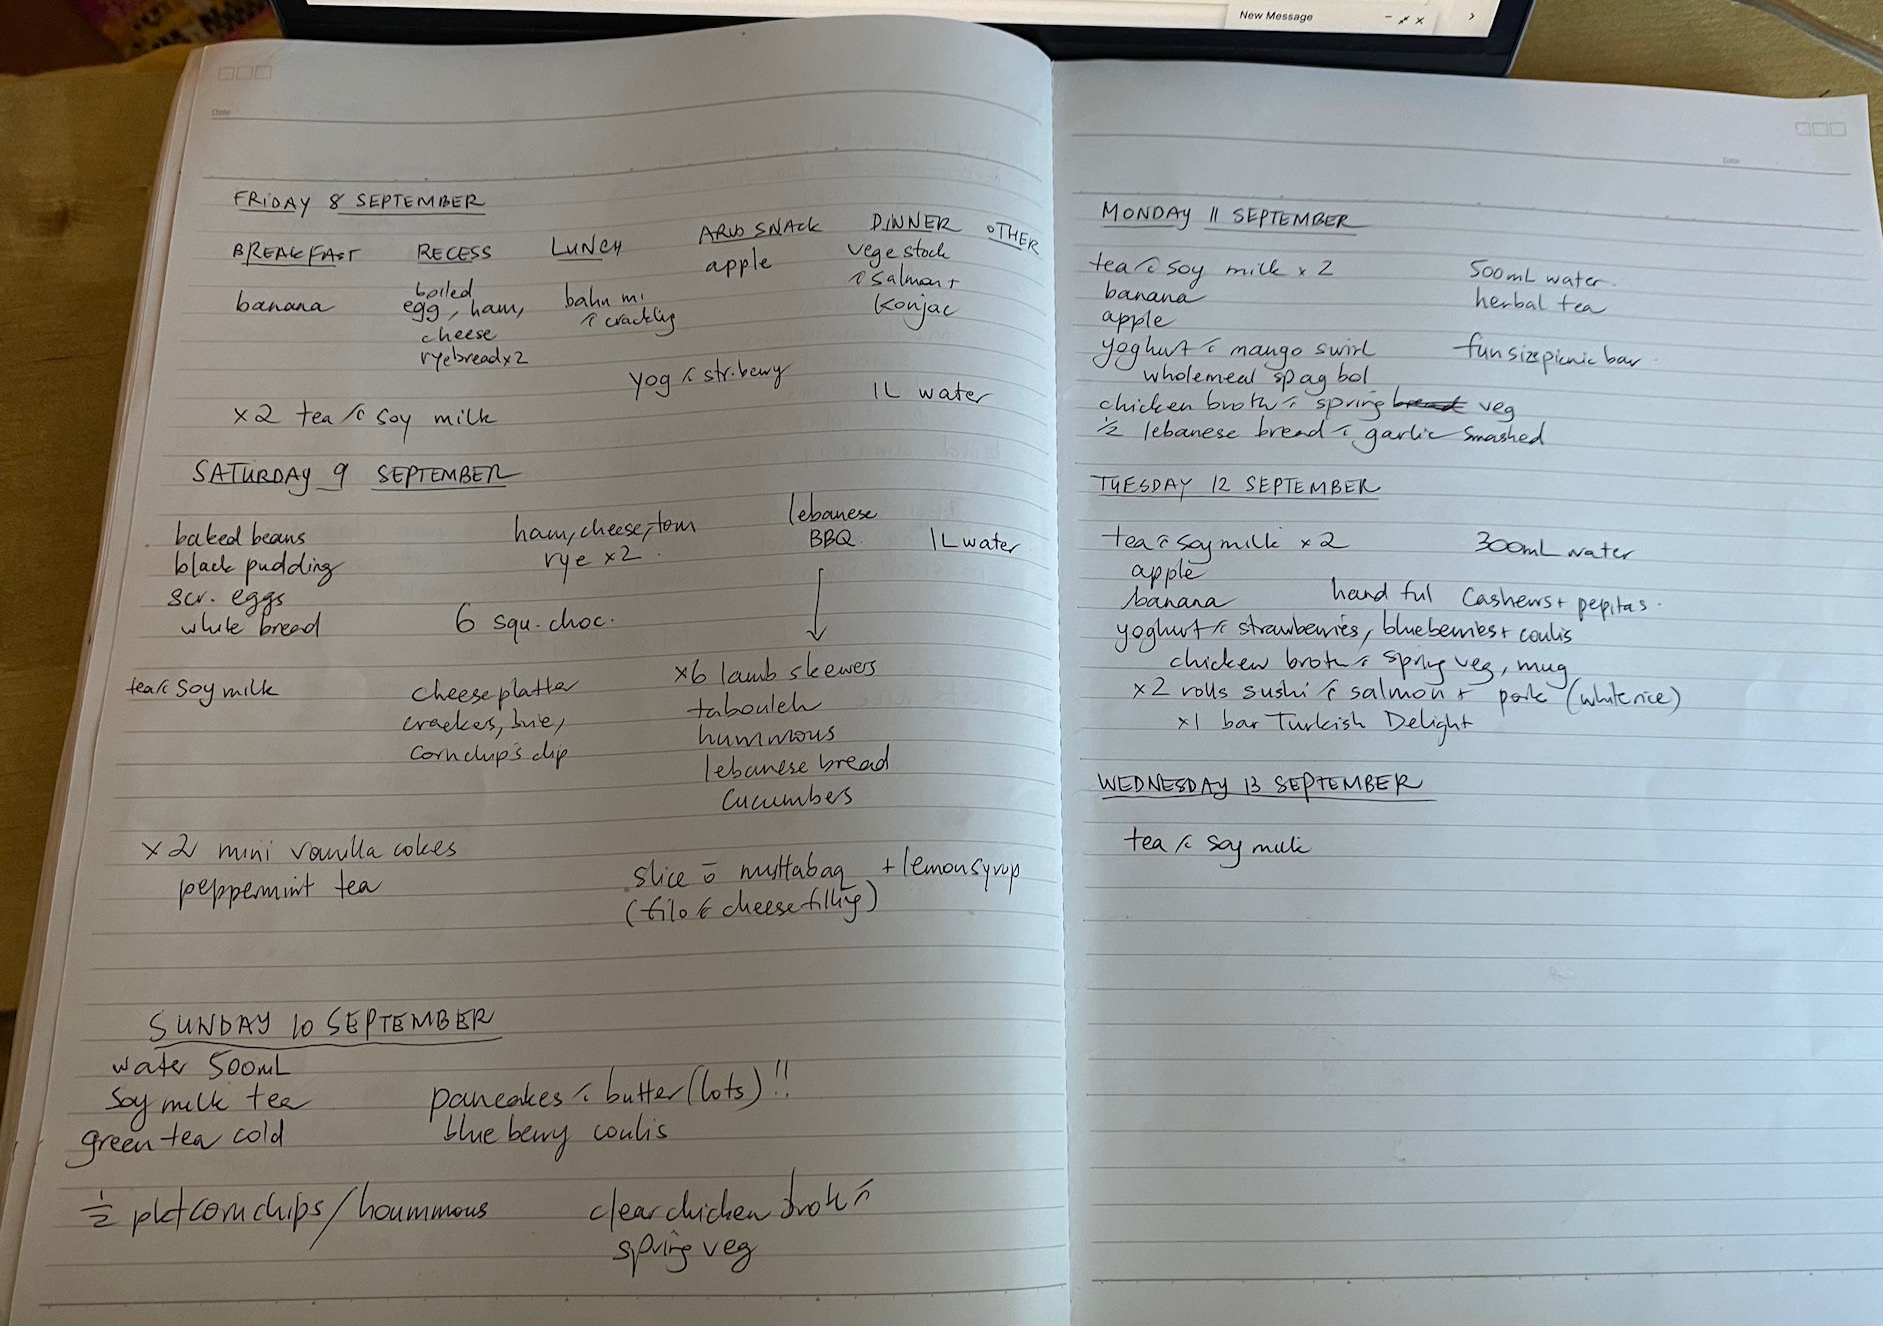 New Message
Date
FRIDAY 8 SEPTEMBER
BREAKFAST RECESS LUNCH ARVO SNACK DINNER OTHER
banana
boiled
egg, ham,
cheese
ryebread x2
bahn mi
c crackling
apple
vege stock
c salmon +
Konjac
yog c str.berry
1L water
x2 tea c soy milk
SATURDAY 9 SEPTEMBER
baked beans
black pudding
scr. eggs
white bread
ham, cheese, tom
rye x2.
lebanese
BBQ
1L water
6 squ. choc.
tea c Soy milk
cheese platter
crackers, brie,
cornchips dip
x6 lamb skewers
tabouleh
hummous
lebanese bread
cucumbers
x2 mini vanilla cakes
peppermint tea
slice o muttabaq + lemon syrup
(filo c cheese filling)
SUNDAY 10 SEPTEMBER
water 500mL
Soy milk tea
green tea cold
pancakes c butter (lots)!!
blueberry coulis
½ pkt corn chips / hoummous
clear chicken broth c
spring veg
Date
MONDAY 11 SEPTEMBER
tea c soy milk x 2
500mL water.
banana
herbal tea
apple
yoghurt c mango swirl
fun size picnic bar
wholemeal spag bol
chicken broth c spring bread veg
½ lebanese bread c garlic smashed
TUESDAY 12 SEPTEMBER
tea c soy milk x 2
300mL water
apple
banana
hand ful Cashews + pepitas.
yoghurt c strawberries, blueberries + coulis
chicken broth c spring veg, mug
x2 rolls sushi c salmon + pork (white rice)
x1 bar Turkish Delight
WEDNESDAY 13 SEPTEMBER
tea c soy milk